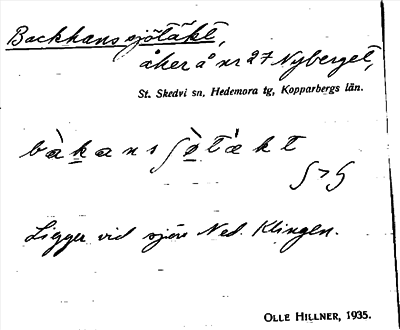 Backhans sjötäkt,
åker å nr 27 Nyberget,
St. Skedvi sn, Hedemora tg, Kopparbergs län.
Ligger vid sjön Ned. Klingen.
OLLE HILLNER, 1935.